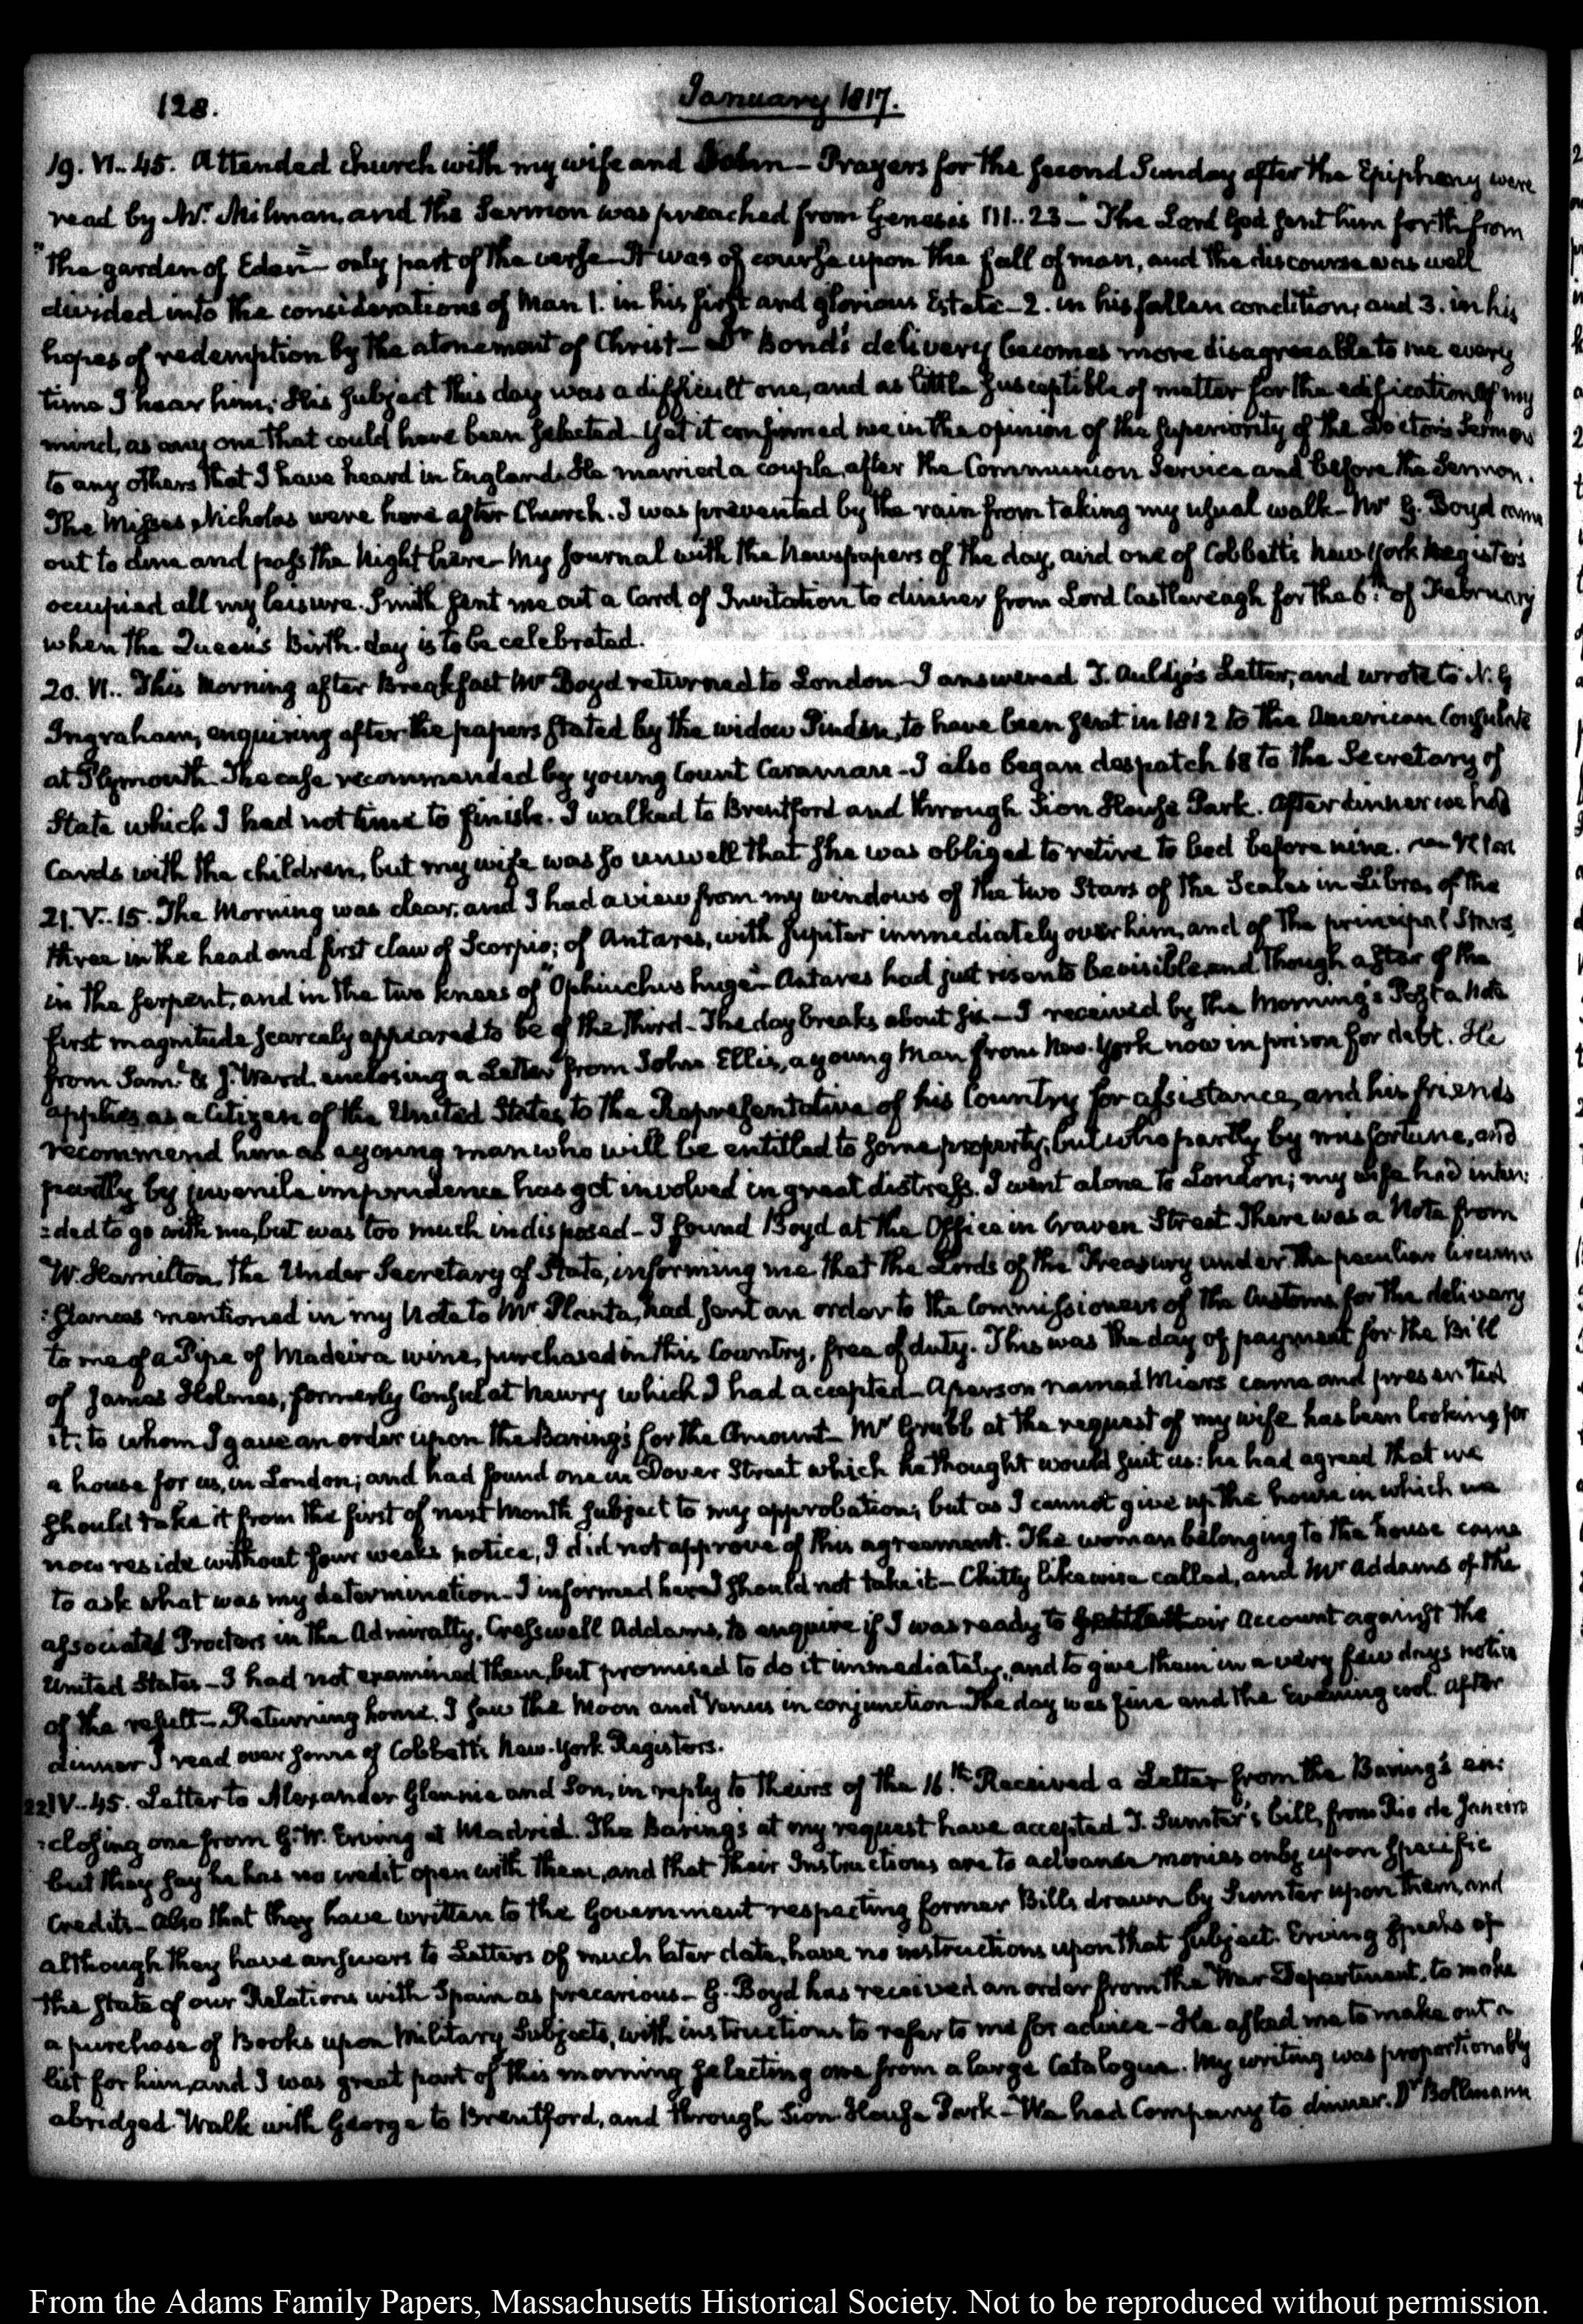 128. January 1817.
19. VI.. 45. Attended church with my wife and John — Prayers for the second Sunday after the Epiphany were
read by Mr. Milman, and the Sermon was preached from Genesis III.. 23 — The Lord God sent him forth from
"the garden of Eden — only part of the verse — It was of course upon the fall of man, and the discourse was well
divided into the considerations of Man 1. in his first and glorious Estate — 2. in his fallen condition, and 3. in his
hopes of redemption by the atonement of Christ — Dr Bond's delivery becomes more disagreeable to me every
time I hear him; His subject this day was a difficult one, and as little susceptible of matter for the edification of my
mind, as any one that could have been selected — Yet it confirmed me in the opinion of the superiority of the Doctor's Sermons
to any others that I have heard in England. He married a couple, after the Communion Service and before the Sermon.
The Misses Nicholas were here after Church. I was prevented by the rain from taking my usual walk — Mr G. Boyd came
out to dine and pass the Night here — My Journal with the Newspapers of the day, and one of Cobbett's New York Registers
occupied all my leisure. Smith sent me out a Card of Invitation to dinner from Lord Castlereagh for the 6th. of February
when the Queen's Birth-day is to be celebrated.
20. VI.. This Morning after Breakfast Mr Boyd returned to London — I answered J. Auldjo's Letter, and wrote to N. G
Ingraham, enquiring after the papers stated by the widow Pinden, to have been sent in 1812 to the American Consulate
at Plymouth — The case recommended by young Count Caraman — I also began despatch 68 to the Secretary of
State which I had not time to finish. I walked to Brentford and through Sion House Park. After dinner we had
Cards with the children, but my wife was so unwell that she was obliged to retire to bed before nine.
21. V.. 15. The Morning was clear, and I had a view from my windows of the two Stars of the Scales in Libra, of the
three in the head and first claw of Scorpio; of Antares, with Jupiter immediately over him, and of the principal Stars,
in the serpent, and in the two knees of "Ophiuchus huge" — Antares had just risen to be visible, and though a star of the
first magnitude scarcely appeared to be of the third — The day breaks about six — I received by the Morning's Post a Note
from Saml. & J. Ward, enclosing a Letter from John Ellis, a young Man from New-York now in prison for debt. He
applies as a Citizen of the United States, to the Representative of his Country for assistance, and his friends
recommend him as a young man who will be entitled to some property, but who partly by misfortune, and
partly by juvenile imprudence has got involved in great distress. I went alone to London; my wife had inten:
:ded to go with me, but was too much indisposed — I found Boyd at the Office in Craven Street. There was a Note from
W. Hamilton, the Under Secretary of State, informing me, that the Lords of the Treasury under the peculiar circum:
:stances mentioned in my Note to Mr Planta, had sent an order to the Commissioners of the Customs for the delivery
to me of a Pipe of Madeira wine, purchased in this Country, free of duty. This was the day of payment for the Bill
of James Holmes, formerly Consul at Newry which I had accepted — A person named Miers came and presented
it; to whom I gave an order upon the Baring's for the Amount — Mr Grubb at the request of my wife has been looking for
a house for us, in London; and had found one in Dover Street which he thought would suit us: he had agreed that we
should take it from the first of next Month subject to my approbation; but as I cannot give up the house in which we
now reside without four weeks notice, I did not approve of this agreement. The woman belonging to the house came
to ask what was my determination — I informed her I should not take it — Chitty likewise called, and Mr Addams of the
associated Proctors in the Admiralty, Cresswell Addams, to enquire if I was ready to settle their Account against the
United States — I had not examined them, but promised to do it immediately, and to give them in a very few days notice
of the result — Returning home, I saw the Moon and Venus in conjunction — The day was fine and the Evening cool. After
dinner I read over some of Cobbett's New-York Registers.
22. IV.. 45. Letter to Alexander Glennie and Son, in reply to theirs of the 16.th Received a Letter from the Baring's en:
:closing one from G. W. Erving at Madrid. The Baring's at my request have accepted T. Sumter's bill, from Rio de Janeiro
but they say he has no credit open with them, and that their Instructions are to advance monies only upon specific
Credits — Also that they have written to the Government respecting former Bills drawn by Sumter upon them, and
although they have answers to Letters of much later date, have no instructions upon that subject. Erving speaks of
the state of our Relations with Spain as precarious — G. Boyd has received an order from the War Department, to make
a purchase of Books upon Military Subjects, with instructions to refer to me for advice — He asked me to make out a
list for him, and I was great part of this morning selecting one from a large Catalogue. My writing was proportionably
abridged. Walk with George to Brentford, and through Sion House Park — We had Company to dinner. Dr Bollmann
From the Adams Family Papers, Massachusetts Historical Society. Not to be reproduced without permission.